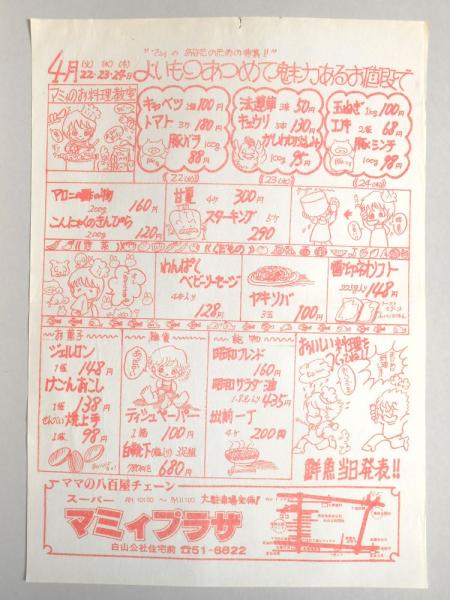 4月 22・23・24日
(火) (水) (木)
よいものあつめて魅力あるお値段で
マミィのお料理教室
キャベツ 1個 100円
トマト 3ケ 180円
豚バラ 100g 88円
法蓮草 3束 50円
キュウリ 5本 130円
100g 95円
玉ねぎ 1kg 100円
エノキ 2袋 68円
豚ミンチ 100g 98円
(22(火))
(23(水))
(24(木))
マロニーの酢の物
200g 160円
こんにゃくのきんぴら
200g 120円
甘夏 4ケ 300円
スターキング 5ケ 290
惣菜
くだもの
わんぱく
ベビーソーセージ
4本入り 128円
ヤキソバ
3玉 100円
雪印ネオソフト
225g入り 148円
お菓子
ジェルロン
1箱 148円
1個 138円
せんべい 焼上手
1袋 98円
雑貨
ティシュペーパー
1箱 100円
3足組
680円
乾物
昭和フレンド
160円
昭和サラダ油
435円
出前一丁
4ケ 200円
おいしい料理を
つくってね
鮮魚当日発表!!
ママの八百屋チェーン
スーパー AM 10:00 〜 PM 11:00 大駐車場完備!
マミィプラザ
白山公社住宅前 ☎51-6822